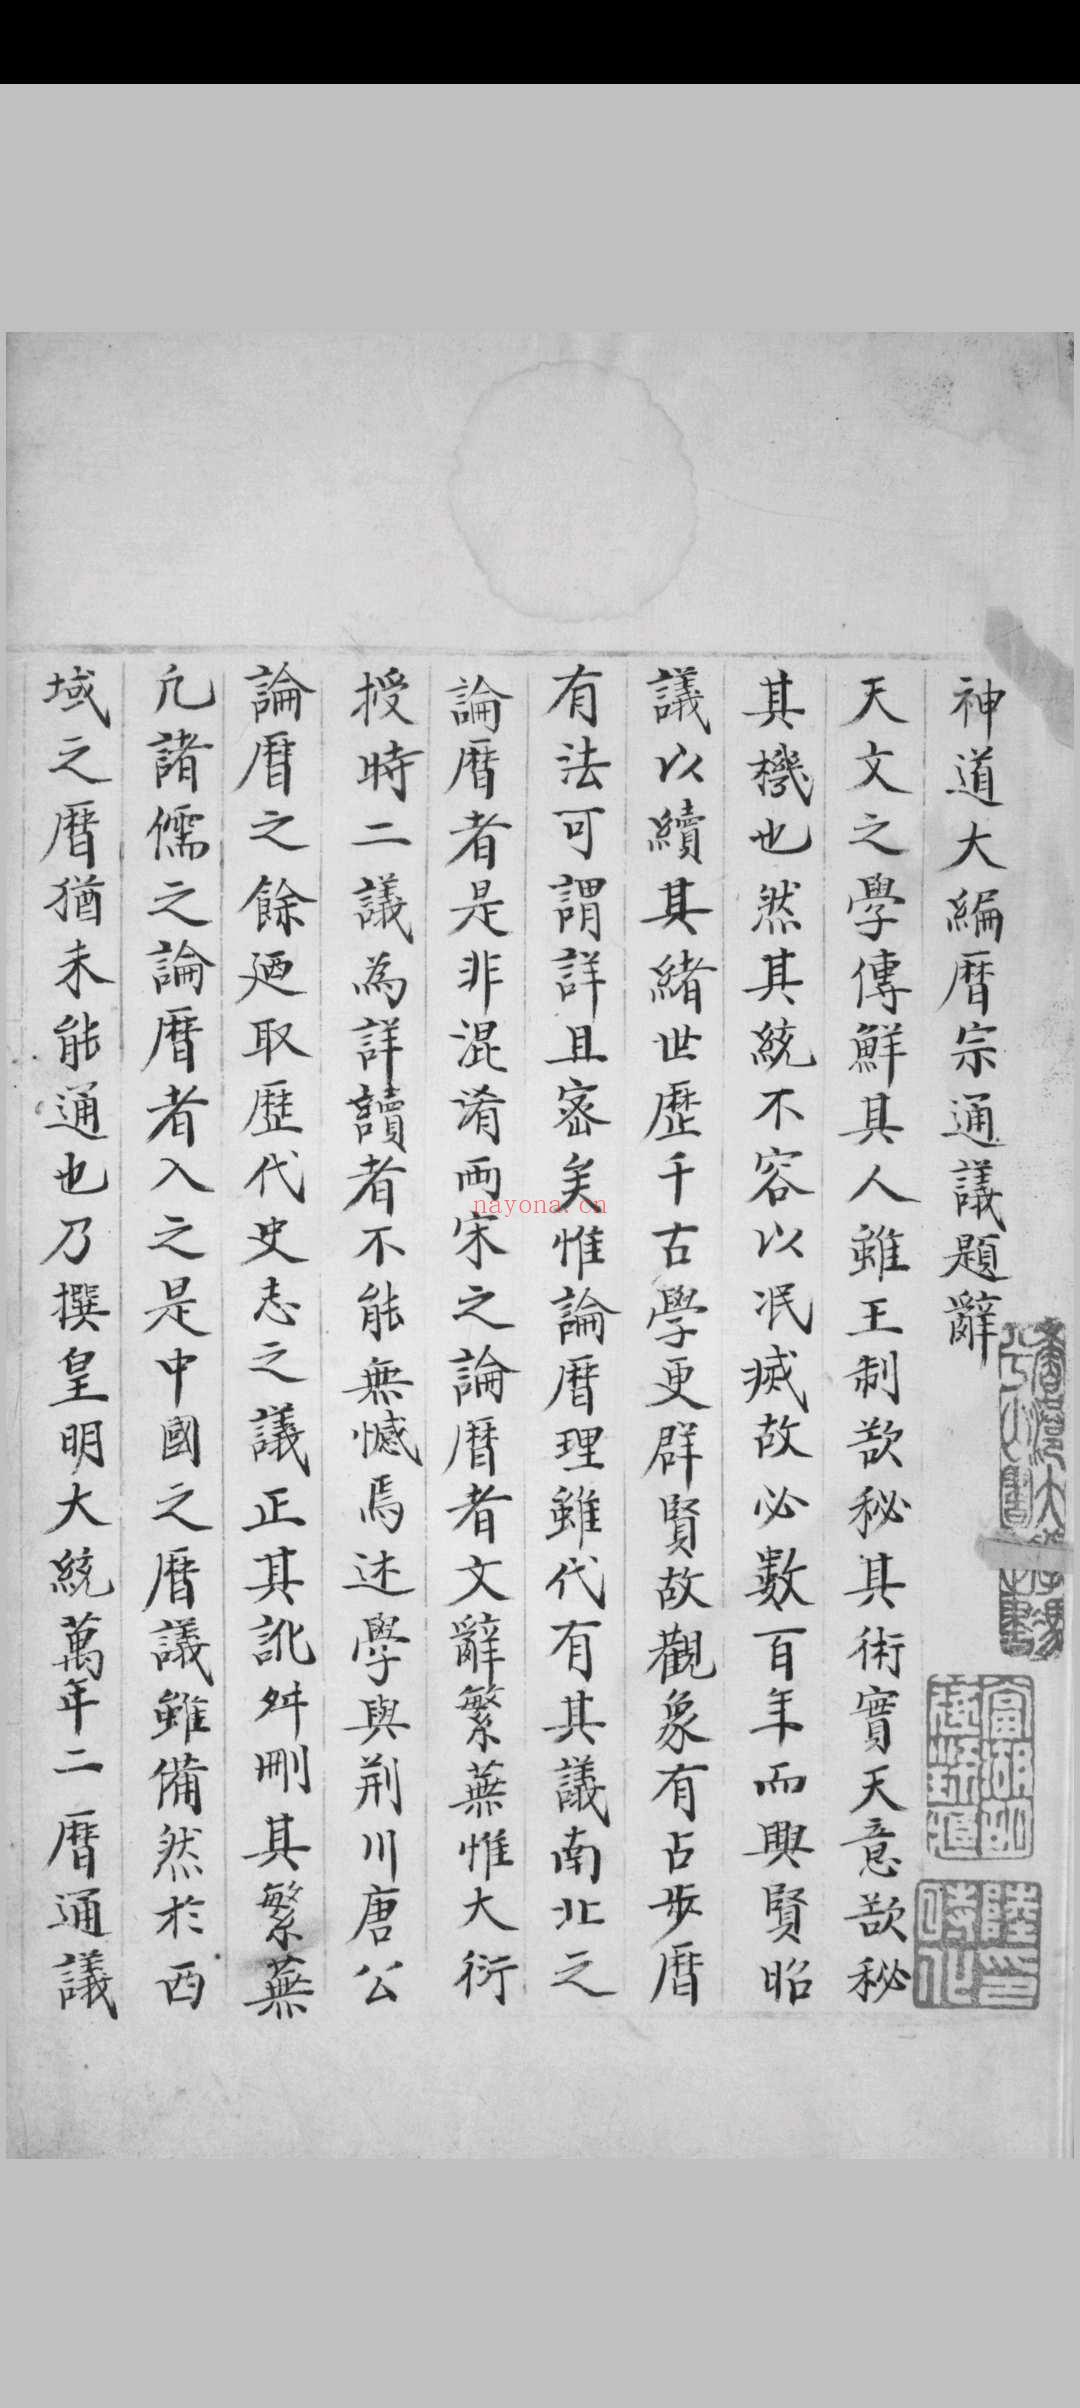 神道大編曆宗通議題辭
天文之學傳鮮其人雖王制欲秘其術實天意欲秘
其機也然其統不容以泯滅故必數百年而興賢昭
議以續其緒世歷千古學更群賢故觀象有占步曆
有法可謂詳且宻矣惟論曆理雖代有其議南北之
論曆者是非混淆兩宋之論曆者文辭繁蕪惟大衍
授時二議為詳讀者不能無憾焉述學與荊川唐公
論曆之餘廼取歷代史志之議正其訛舛刪其繁蕪
凢諸儒之論曆者入之是中國之曆議雖備然於西
域之曆猶未能通也乃撰皇明大統萬年二曆通議
nayona.cn